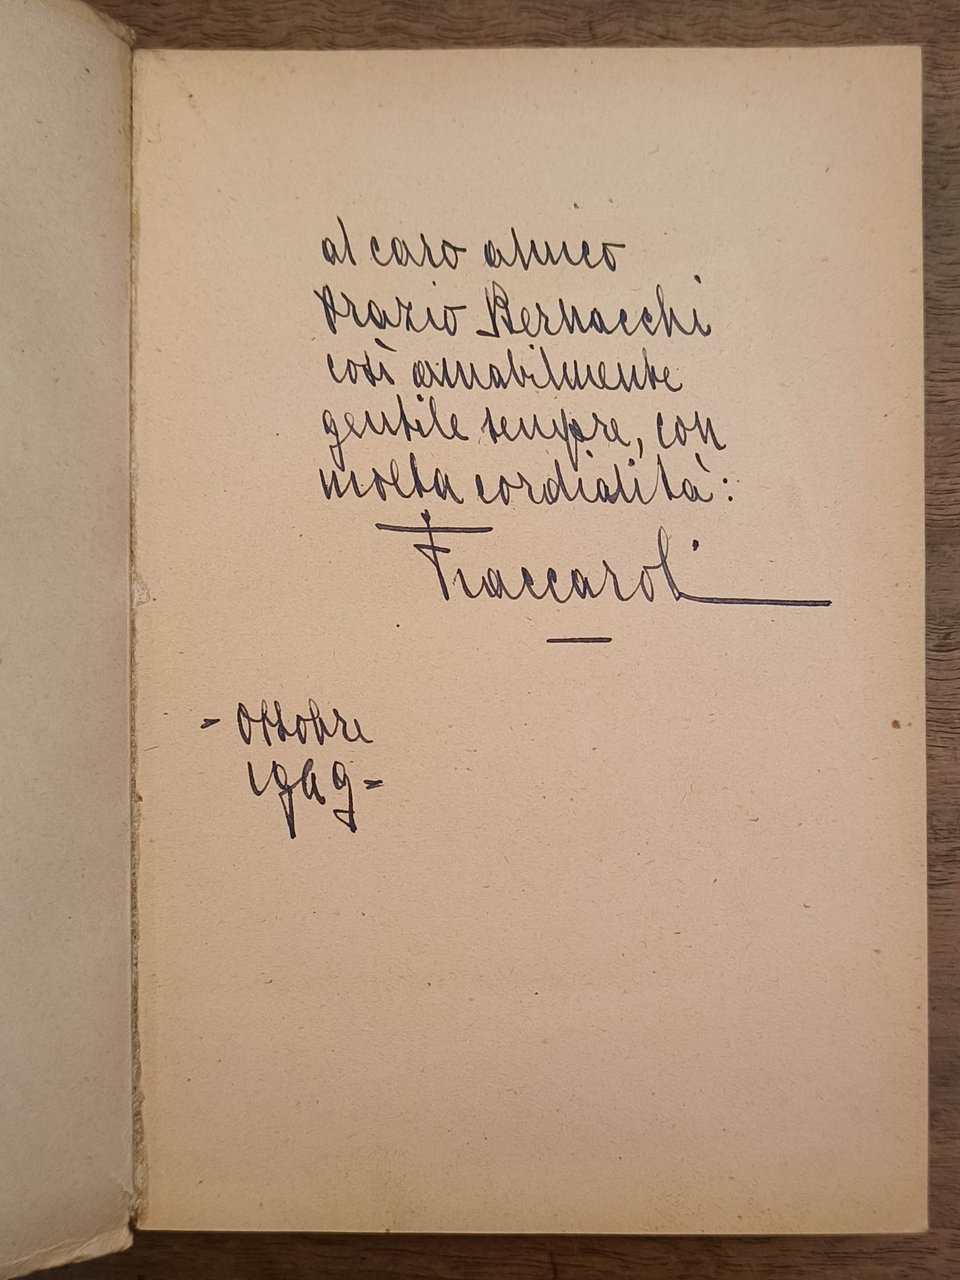 al caro amico
Orazio Bernacchi
così amabilmente
gentile sempre, con
molta cordialità:
Fraccaroli
- Ottobre
1949 -